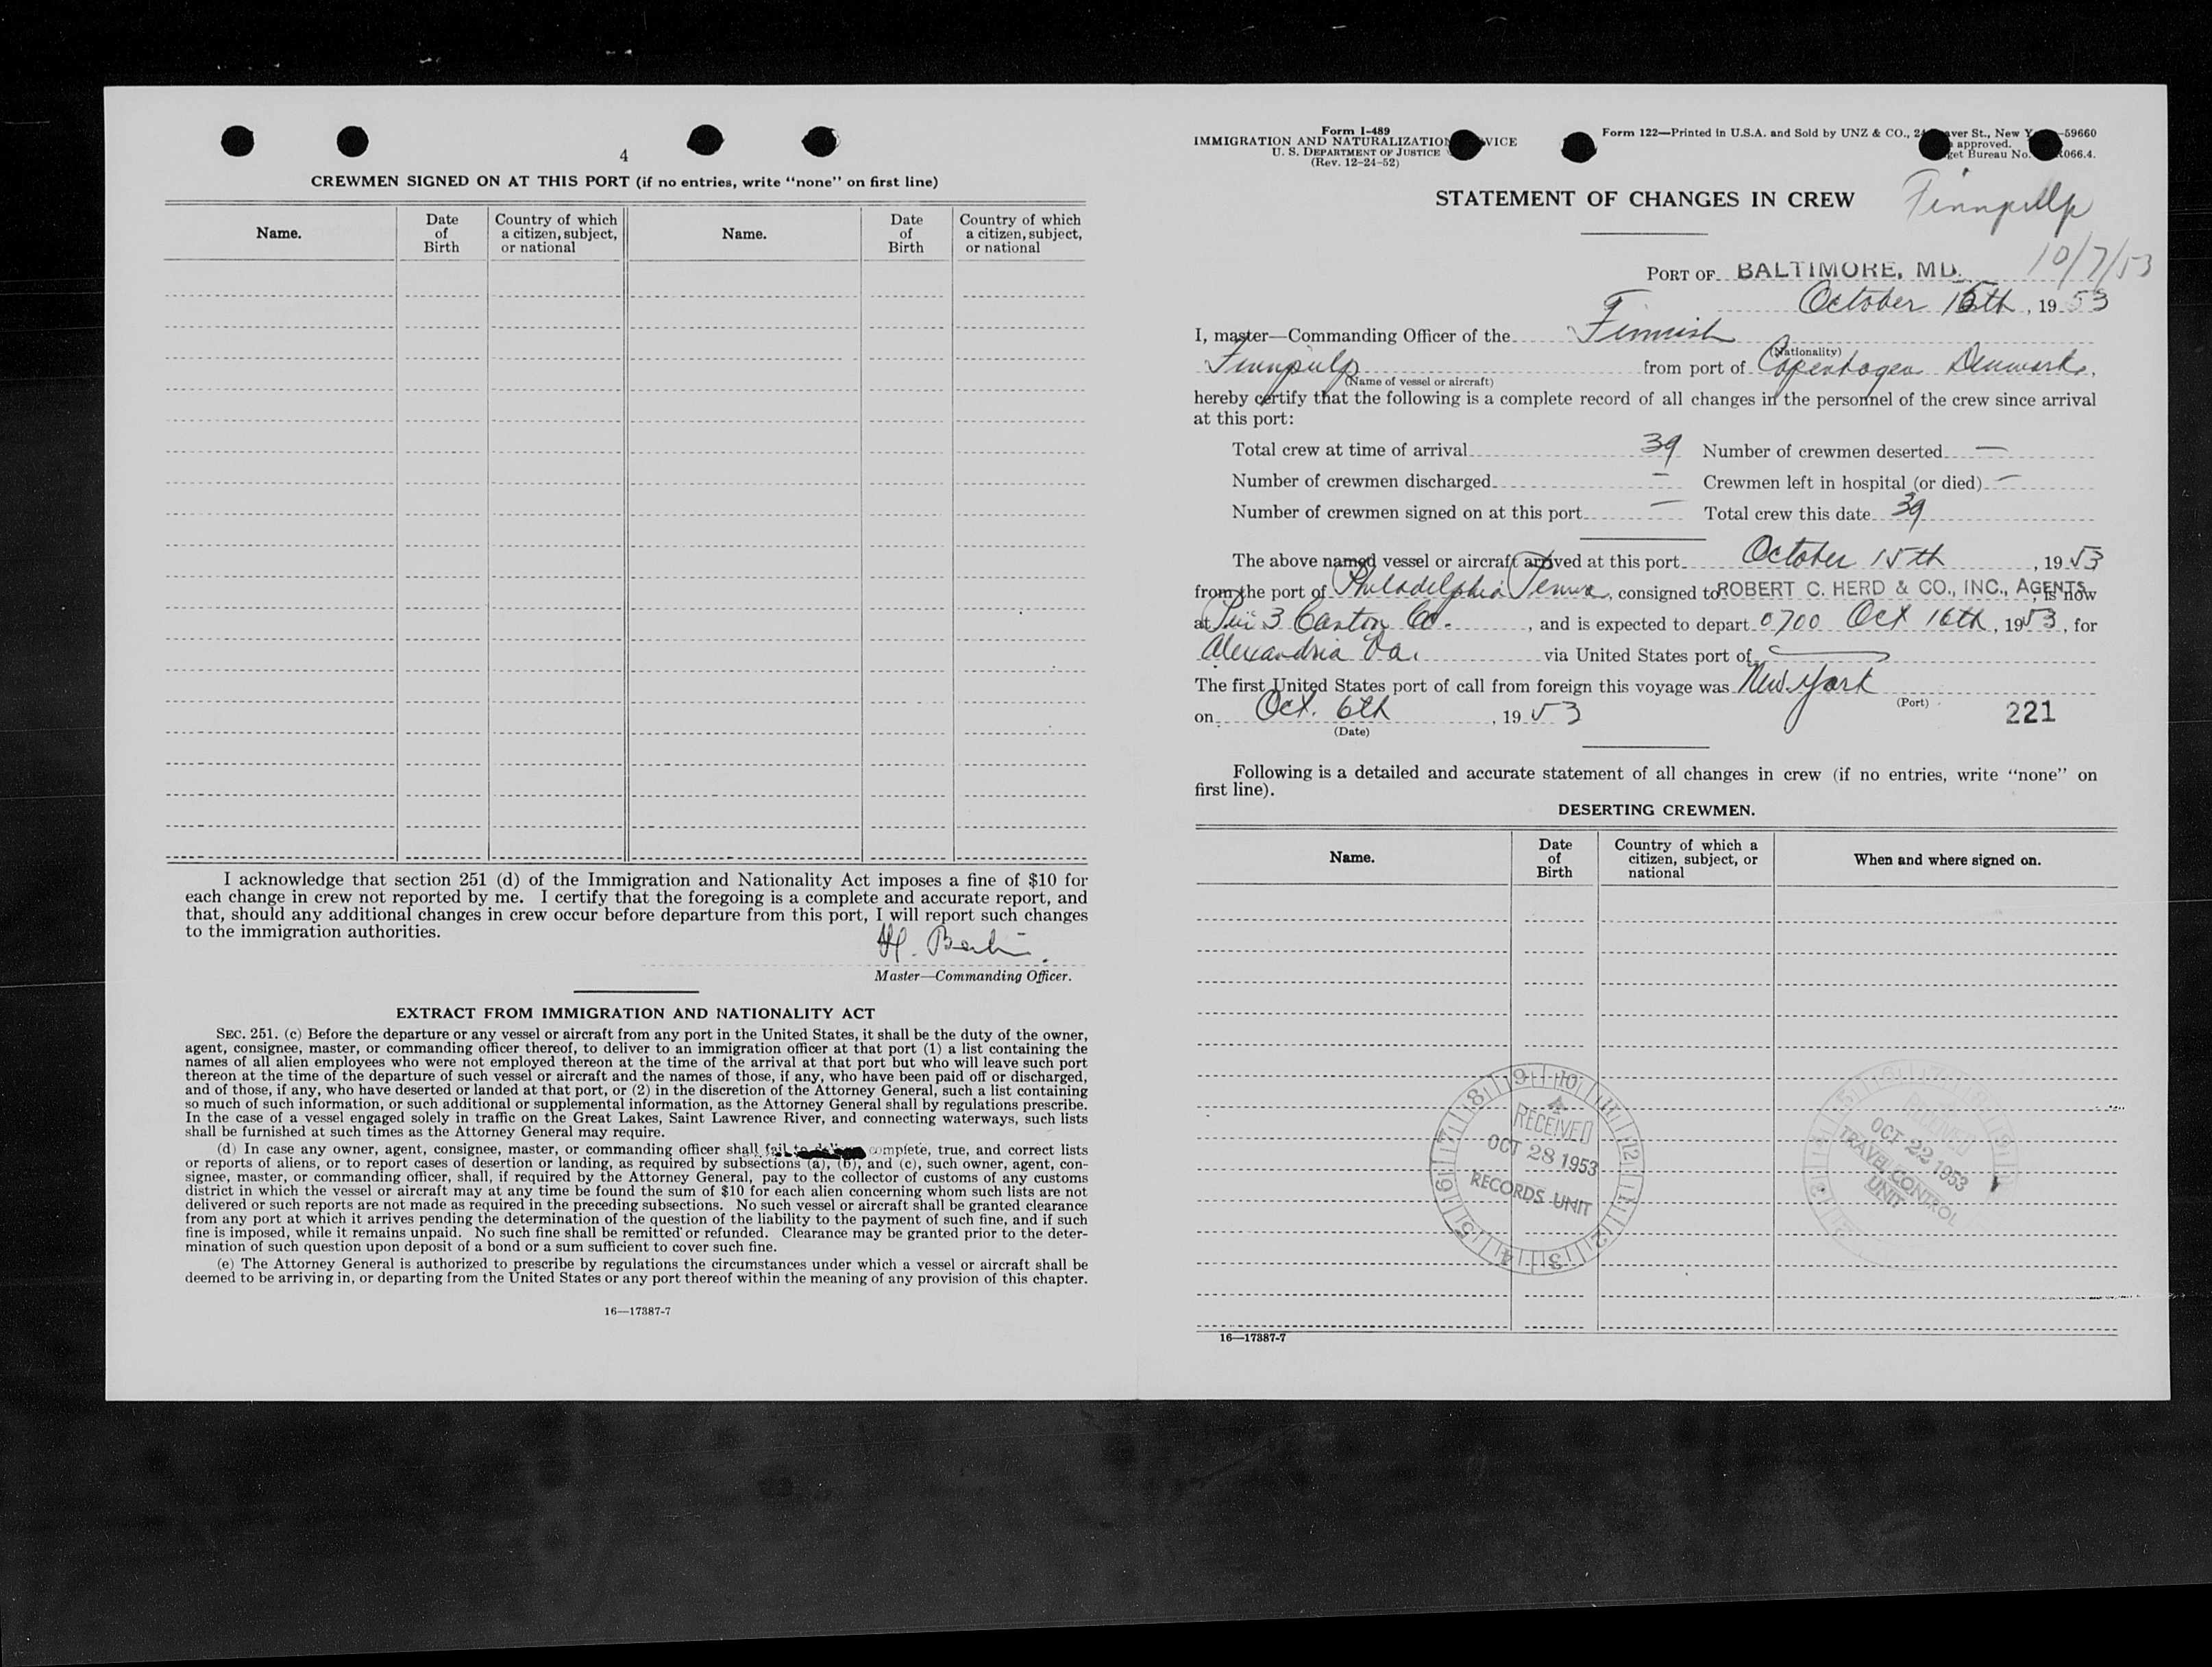 4
CREWMEN SIGNED ON AT THIS PORT (if no entries, write "none" on first line)
Name.
Date of Birth
Country of which a citizen, subject, or national
Name.
Date of Birth
Country of which a citizen, subject, or national
I acknowledge that section 251 (d) of the Immigration and Nationality Act imposes a fine of $10 for
each change in crew not reported by me. I certify that the foregoing is a complete and accurate report, and
that, should any additional changes in crew occur before departure from this port, I will report such changes
to the immigration authorities.
H.
Master—Commanding Officer.
EXTRACT FROM IMMIGRATION AND NATIONALITY ACT
SEC. 251. (c) Before the departure or any vessel or aircraft from any port in the United States, it shall be the duty of the owner,
agent, consignee, master, or commanding officer thereof, to deliver to an immigration officer at that port (1) a list containing the
names of all alien employees who were not employed thereon at the time of the arrival at that port but who will leave such port
thereon at the time of the departure of such vessel or aircraft and the names of those, if any, who have been paid off or discharged,
and of those, if any, who have deserted or landed at that port, or (2) in the discretion of the Attorney General, such a list containing
so much of such information, or such additional or supplemental information, as the Attorney General shall by regulations prescribe.
In the case of a vessel engaged solely in traffic on the Great Lakes, Saint Lawrence River, and connecting waterways, such lists
shall be furnished at such times as the Attorney General may require.
(d) In case any owner, agent, consignee, master, or commanding officer shall fail to complete, true, and correct lists
or reports of aliens, or to report cases of desertion or landing, as required by subsections (a), (b), and (c), such owner, agent, con-
signee, master, or commanding officer, shall, if required by the Attorney General, pay to the collector of customs of any customs
district in which the vessel or aircraft may at any time be found the sum of $10 for each alien concerning whom such lists are not
delivered or such reports are not made as required in the preceding subsections. No such vessel or aircraft shall be granted clearance
from any port at which it arrives pending the determination of the question of the liability to the payment of such fine, and if such
fine is imposed, while it remains unpaid. No such fine shall be remitted or refunded. Clearance may be granted prior to the deter-
mination of such question upon deposit of a bond or a sum sufficient to cover such fine.
(e) The Attorney General is authorized to prescribe by regulations the circumstances under which a vessel or aircraft shall be
deemed to be arriving in, or departing from the United States or any port thereof within the meaning of any provision of this chapter.
16—17387-7
Form I-489
IMMIGRATION AND NATURALIZATION VICE
U. S. DEPARTMENT OF JUSTICE
(Rev. 12-24-52)
Form 122—Printed in U.S.A. and Sold by UNZ & CO., 24 aver St., New Y -59660
approved.
get Bureau No. R066.4.
STATEMENT OF CHANGES IN CREW
Finnpulp
10/7/53
PORT OF BALTIMORE, MD.
October 15th, 1953
I, master—Commanding Officer of the Finnish
(Nationality)
Finnpulp from port of Copenhagen Denmark,
(Name of vessel or aircraft)
hereby certify that the following is a complete record of all changes in the personnel of the crew since arrival
at this port:
Total crew at time of arrival 39 Number of crewmen deserted —
Number of crewmen discharged — Crewmen left in hospital (or died) —
Number of crewmen signed on at this port — Total crew this date 39
The above named vessel or aircraft arrived at this port October 15th, 1953
from the port of Philadelphia Penna, consigned to ROBERT C. HERD & CO., INC., AGENTS, is now
at Pier 3 Canton Co., and is expected to depart 0700 Oct 16th, 1953, for
Alexandria Va. via United States port of —
The first United States port of call from foreign this voyage was New York
(Port)
on Oct. 6th, 1953
(Date)
221
Following is a detailed and accurate statement of all changes in crew (if no entries, write "none" on
first line).
DESERTING CREWMEN.
Name.
Date of Birth
Country of which a citizen, subject, or national
When and where signed on.
RECEIVED
OCT 28 1953
RECORDS UNIT
RECEIVED
OCT 22 1953
TRAVEL CONTROL
UNIT
16—17387-7